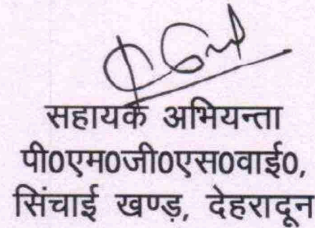 सहायक अभियन्ता
पी0एम0जी0एस0वाई0,
सिंचाई खण्ड़, देहरादून